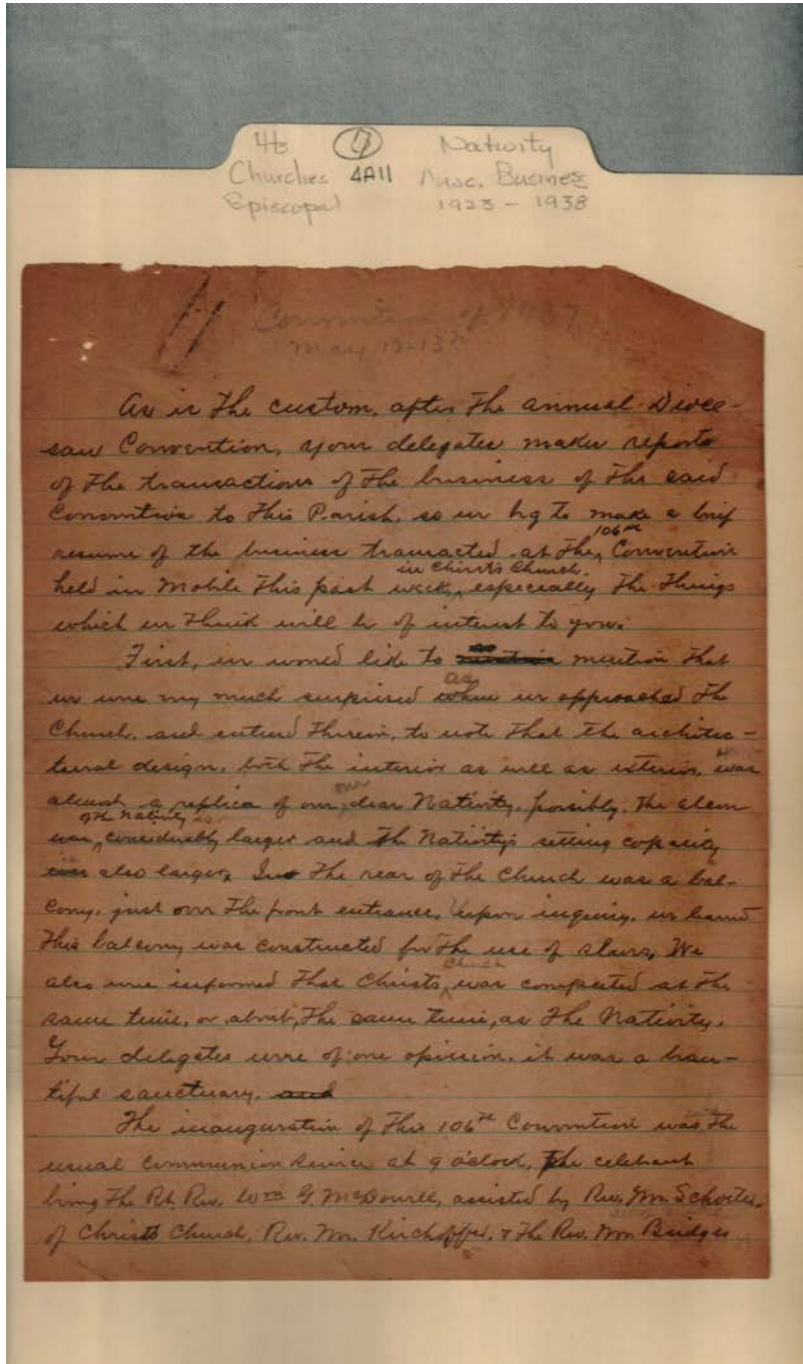 Hs ⑦ Nativity
Churches 4A11 Misc. Business
Episcopal 1923 - 1938
Convention of 1937
May 12-13th
As is the custom, after the annual Dioce-
san Convention, your delegates make reports
of the transactions of the business of the said
Convention to this Parish, so we beg to make a brief
106th
resume of the business transacted at the Convention
in Christ's Church
held in Mobile this past week, especially the things
which we think will be of interest to you.
First, we would like to mention that
as
we were very much surprised when we approached the
Church, and entered therein, to note that the architec-
tural design, both the interior as well as exterior, was
almost a replica of our dear Nativity, possibly. The
of the Nativity is
was considerably larger and the Nativity's setting capacity
also larger. In the rear of the Church was a bal-
cony, just over the front entrance. Upon inquiry, we learned
this balcony was constructed for the use of slaves. We
Church
also were informed that Christs was completed at the
same time, or about, the same time, as the Nativity.
Your delegates were of one opinion, it was a beau-
tiful sanctuary. and
The inauguration of this 106th Convention was the
usual Communion Service at 9 o'clock, the celebrant
being the Rt. Rev. Wm G. McDowell, assisted by Rev. Wm.
of Christ Church, Rev. Wm. Kirchoffer, & the Rev. Wm Bridges